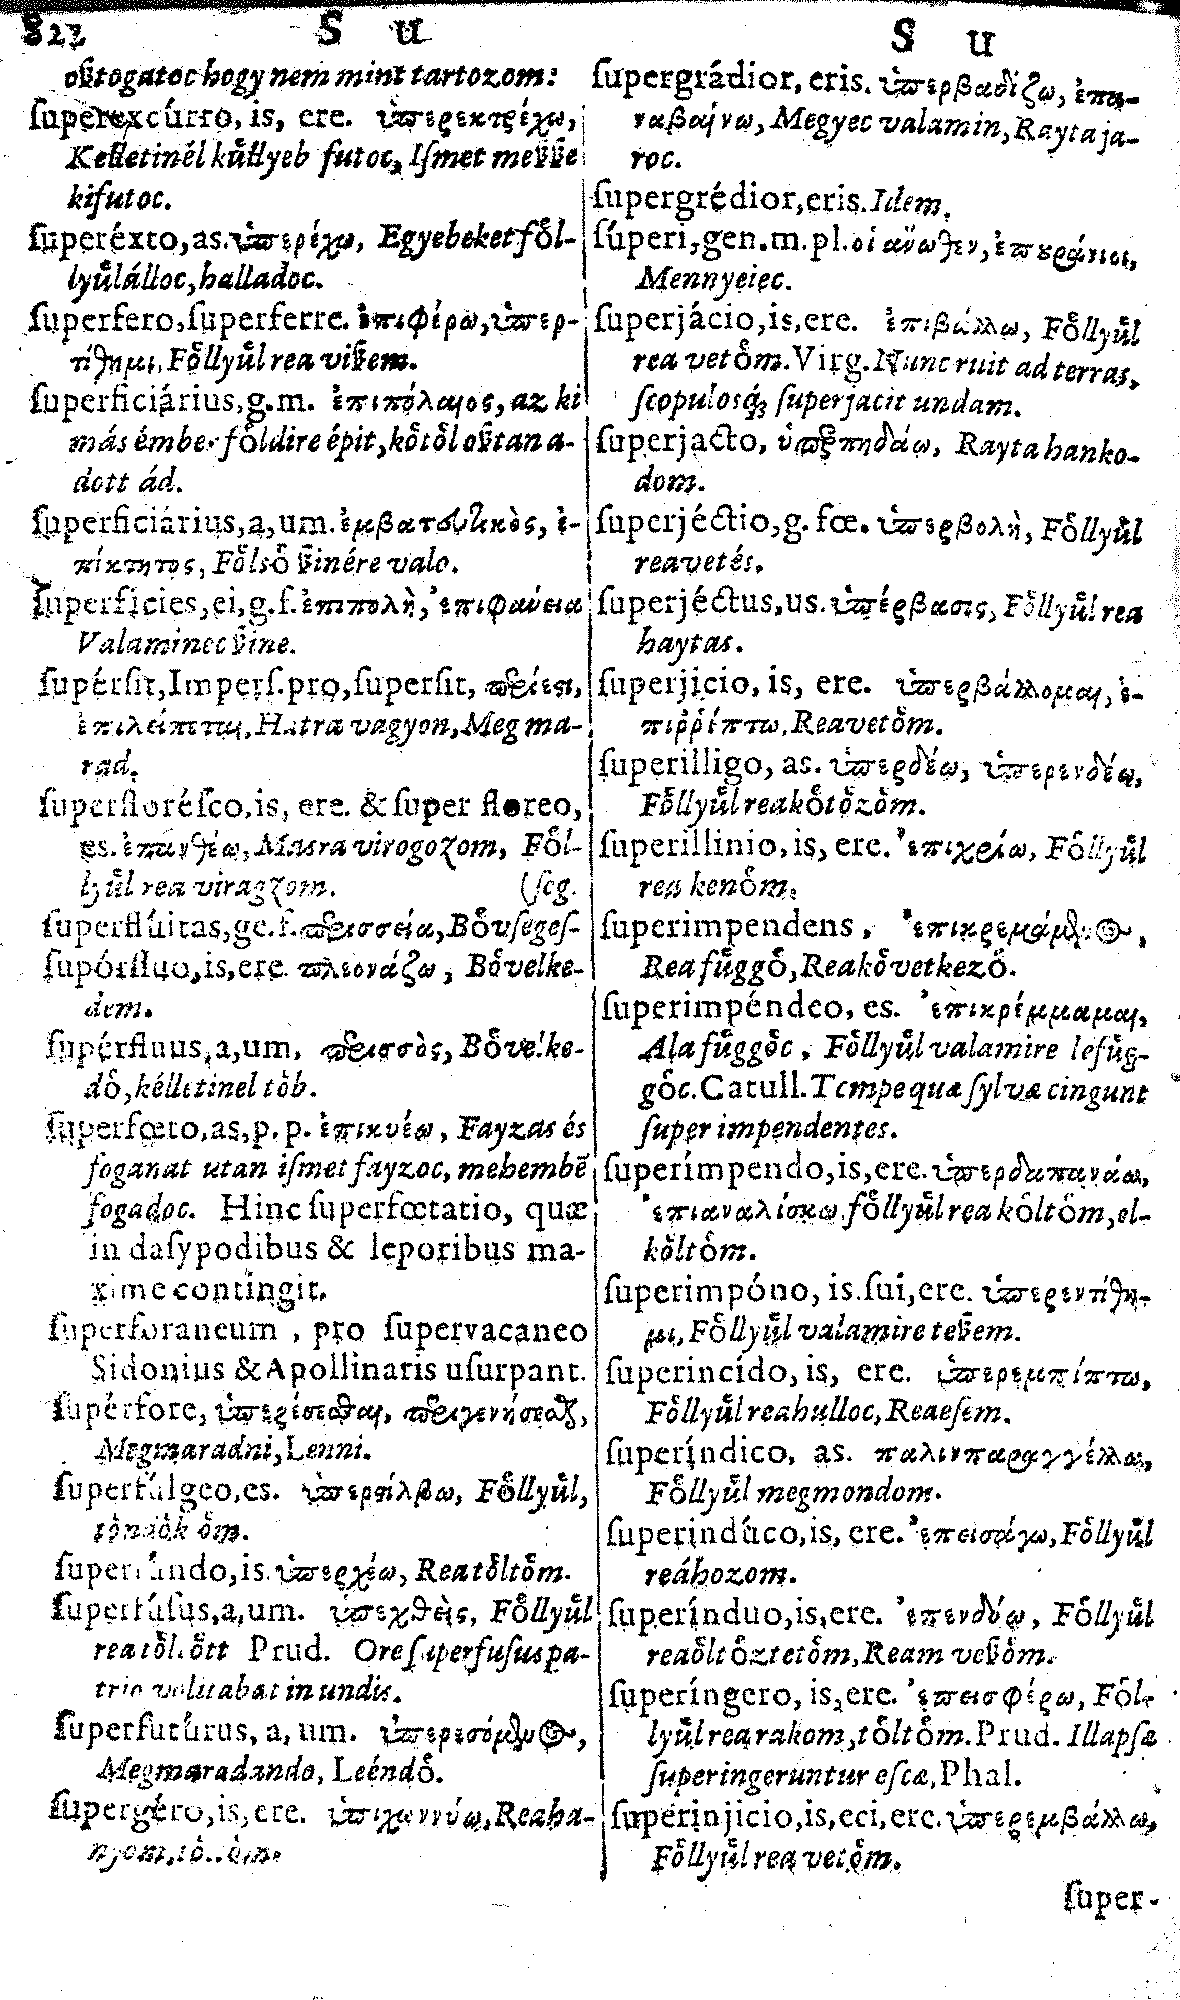 822 S u
S u
oſztogatoc hogy nem mint tartozom:
ſuperexcúrro, is, ere. ὑπερεκτρέχω,
Kelletinél kűllyeb futoc, Iſmet meſzſze
kifutoc.
ſuperéxto, as. ὑπερέχω, Egyebeket fôl-
lyűlálloc, halladoc.
ſuperfero, ſuperferre. ἐπιφέρω, ὑπερ-
τίθημι, Fôllyűl rea viſzem.
ſuperficiárius, g.m. ἐπιπόλαιος, az ki
más ember földire épit, kôtôl oſztan a-
dott ád.
ſuperficiárius, a, um. ἐμβατευτικὸς, ἐ-
πίκτητος, Fôlsô ſzinére valo.
ſuperficies, ei, g.f. ἐπιπολὴ, ἐπιφάνεια
Valaminec ſzine.
ſupérſit, Imperſ. pro, ſuperſit, περίεστι,
ἐπιλείπεται, Hatra vagyon, Meg ma-
rad.
ſuperfloréſco, is, ere. & ſuper floreo,
es. ἐπανθέω, Maſra virogozom, Fôl-
lyűl rea viragzom. (ſég.
ſuperflúitas, ge. f. περισσεία, Bôvſegeſ-
ſupérfluo, is, ere. πλεονάζω, Bôvelke-
dem.
ſupérfluus, a, um, περισσὸς, Bôvelke-
dô, kélletinel tôb.
ſuperfœto, as, p. p. ἐπικυέω, Fayzas és
foganat utan iſmet fayzoc, mehembē
fogadoc. Hinc ſuperfœtatio, quæ
in daſypodibus & leporibus ma-
xime contingit.
ſuperforaneum, pro ſupervacaneo
Sidonius & Apollinaris uſurpant.
ſupérfore, ὑπερέσεσθαι, περιγενήσεσθαι,
Megmaradni, Lenni.
ſuperfúlgeo, es. ὑπερστίλβω, Fôllyűl,
ſuperfúndo, is. ὑπερχέω, Rea tôltôm.
ſuperfúſus, a, um. ὑπεχθεὶς, Fôllyűl
rea tôltôtt Prud. Ore ſuperfuſus pa-
trio volutabat in undis.
ſuperfutúrus, a, um. ὑπερεσόμενος,
Megmaradando, Leéndô.
ſupergéro, is, ere. ὑπιχωννύω, Rea ha-
ſupergrádior, eris. ὑπερβαδίζω, ἐπα-
ναβαίνω, Megyec valamin, Rayta ja-
roc.
ſupergrédior, eris. Idem.
ſúperi, gen. m. pl. οἱ ἄνωθεν, ἐπουράνιοι,
Mennyeiec.
ſuperjácio, is, ere. ἐπιβάλλω, Fôllyűl
rea vetôm. Virg. Nunc ruit ad terras,
ſcopulosq́ue ſuperjacit undam.
ſuperjacto, ὑπερπηδάω, Rayta hanko-
dom.
ſuperjéctio, g. fœ. ὑπερβολὴ, Fôllyűl
reavetés.
ſuperjéctus, us. ὑπέρβασις, Fôllyűl rea
haytas.
ſuperjicio, is, ere. ὑπερβάλλομαι, ἐ-
πιῤῥίπτω, Reavetôm.
ſuperilligo, as. ὑπερδέω, ὑπερενδέω,
Fôllyűl reakôtôzôm.
ſuperillinio, is, ere. ἐπιχρίω, Fôllyűl
rea kenôm.
ſuperimpendens, ἐπικρεμάμενος,
Rea fűggô, Reakôvetkezô.
ſuperimpéndeo, es. ἐπικρέμμαμαι,
Ala fűggôc, Fôllyűl valamire lefűg-
gôc. Catull. Tempe quæ ſylvæ cingunt
ſuper impendentes.
ſuperímpendo, is, ere. ὑπερδαπανάω,
ἐπιαναλίσκω. fôllyűl rea kôltôm, el-
kôltôm.
ſuperimpóno, is. ſui, ere. ὑπερεντίθη-
μι, Fôllyűl valamire teſzem.
ſuperincído, is, ere. ὑπερεμπίπτω,
Fôllyűl rea hulloc, Rea eſem.
ſuperíndico, as. παλινπαραγγέλλω,
Fôllyűl megmondom.
ſuperindúco, is, ere. ἐπεισάγω, Fôllyűl
reáhozom.
ſuperínduo, is, ere. ἐπενδύω, Fôllyűl
reaôltôztetôm, Ream veſzôm.
ſuperíngero, is, ere. ἐπεισφέρω, Fôl-
lyűl rea rakom, tôltôm. Prud. Illapſæ
ſuperingeruntur eſcæ, Phal.
ſuperinjicio, is, eci, ere. ὑπερεμβάλλω,
Fôllyűl rea vetôm.
ſuper-